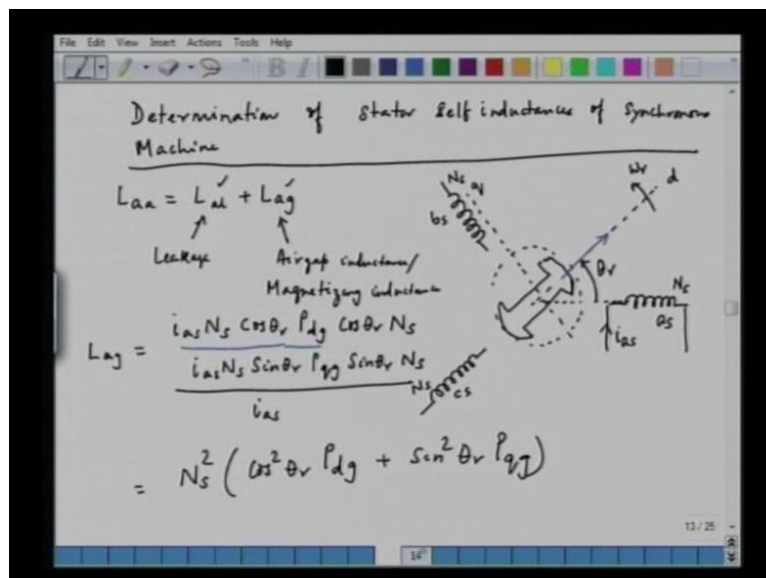 File Edit View Insert Actions Tools Help
B I
Determination of Stator Self inductances of Synchronous
Machine
Laa = Lal + Lag
Leakage
Airgap inductance/
Magnetizing inductance
Lag = ias Ns Cosθr Pdg Cosθr Ns
ias Ns Sinθr Pqg Sinθr Ns
ias
= Ns² ( Cos²θr Pdg + Sin²θr Pqg )
Ns q
bs
ωr d
θr
Ns
as
ias
Ns
cs
13 / 25
14